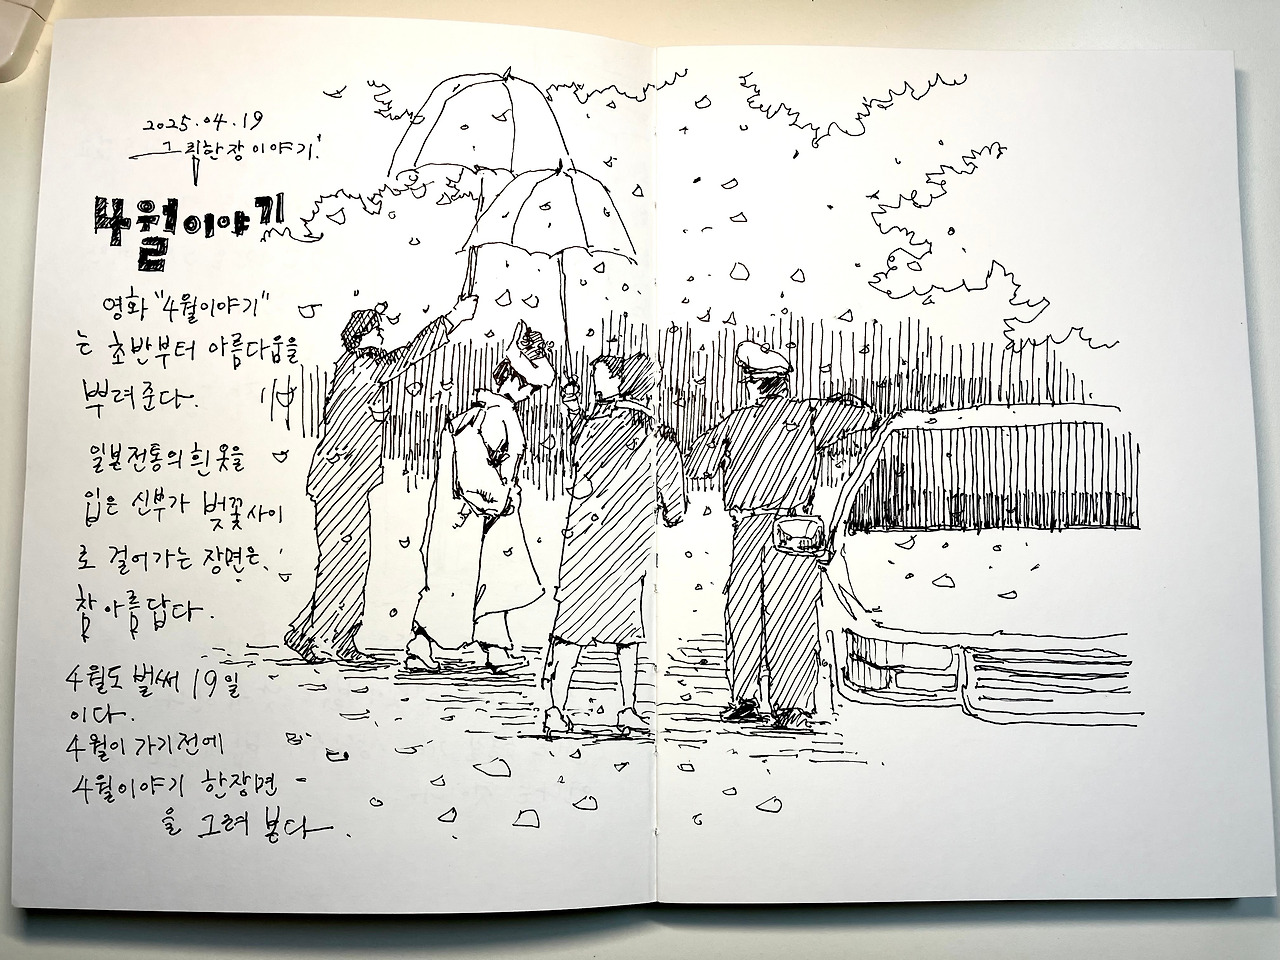 2025.04.19
그림한장이야기!
4월이야기
영화 "4월이야기"
는 초반부터 아름다움을
뿌려준다.
일본전통의 흰 옷을
입은 신부가 벚꽃사이
로 걸어가는 장면은,
참 아름답다.
4월도 벌써 19일
이다.
4월이 가기전에
4월이야기 한장면
을 그려 본다.